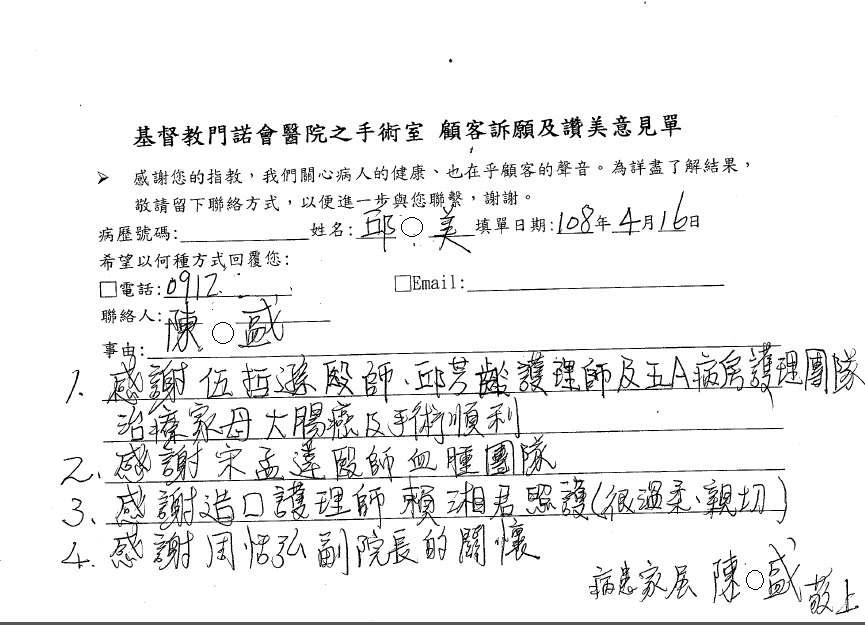 基督教門諾會醫院之手術室 顧客訴願及讚美意見單
➢ 感謝您的指教，我們關心病人的健康、也在乎顧客的聲音。為詳盡了解結果，
敬請留下聯絡方式，以便進一步與您聯繫，謝謝。
病歷號碼: 姓名: 邱○美 填單日期:108年4月16日
希望以何種方式回覆您:
□電話:0912 □Email:
聯絡人:陳○盛
事由:
1. 感謝伍哲遜醫師、邱芳齡護理師及五A病房護理團隊
治療家母大腸癌及手術順利
2. 感謝宋孟達醫師血腫團隊
3. 感謝造口護理師賴湘君照護(很溫柔、親切)
4. 感謝周恬弘副院長的關懷
病患家屬 陳○盛 敬上